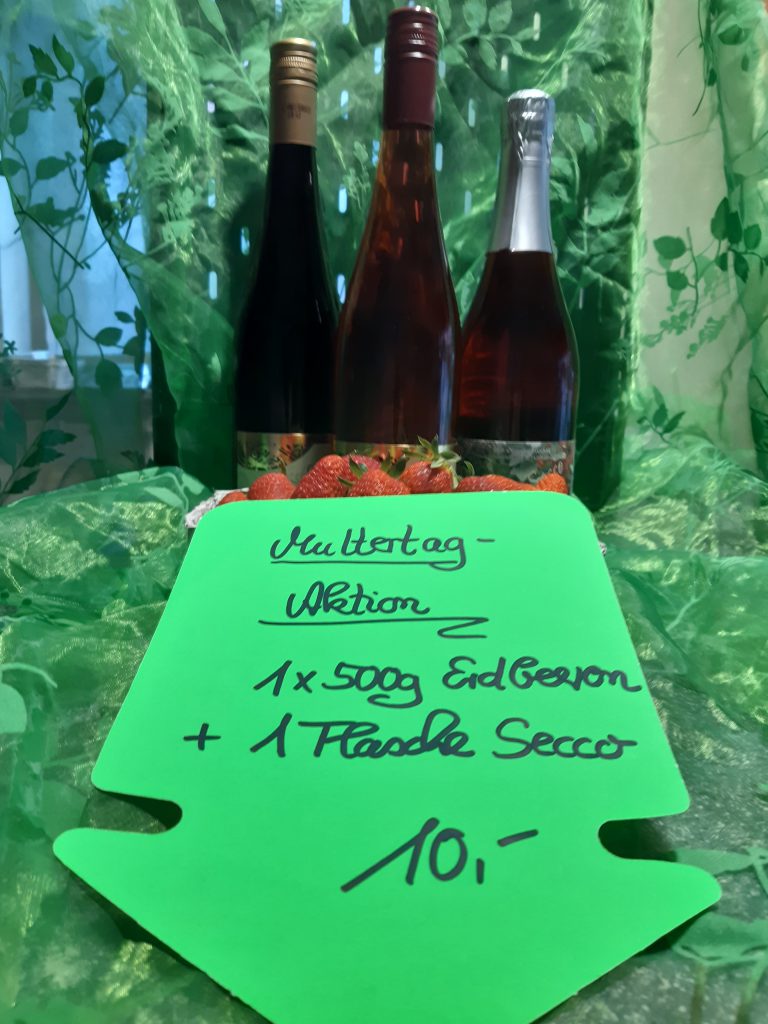 Muttertag-
Aktion
1 x 500g Erdbeeren
+ 1 Flasche Secco
10,-